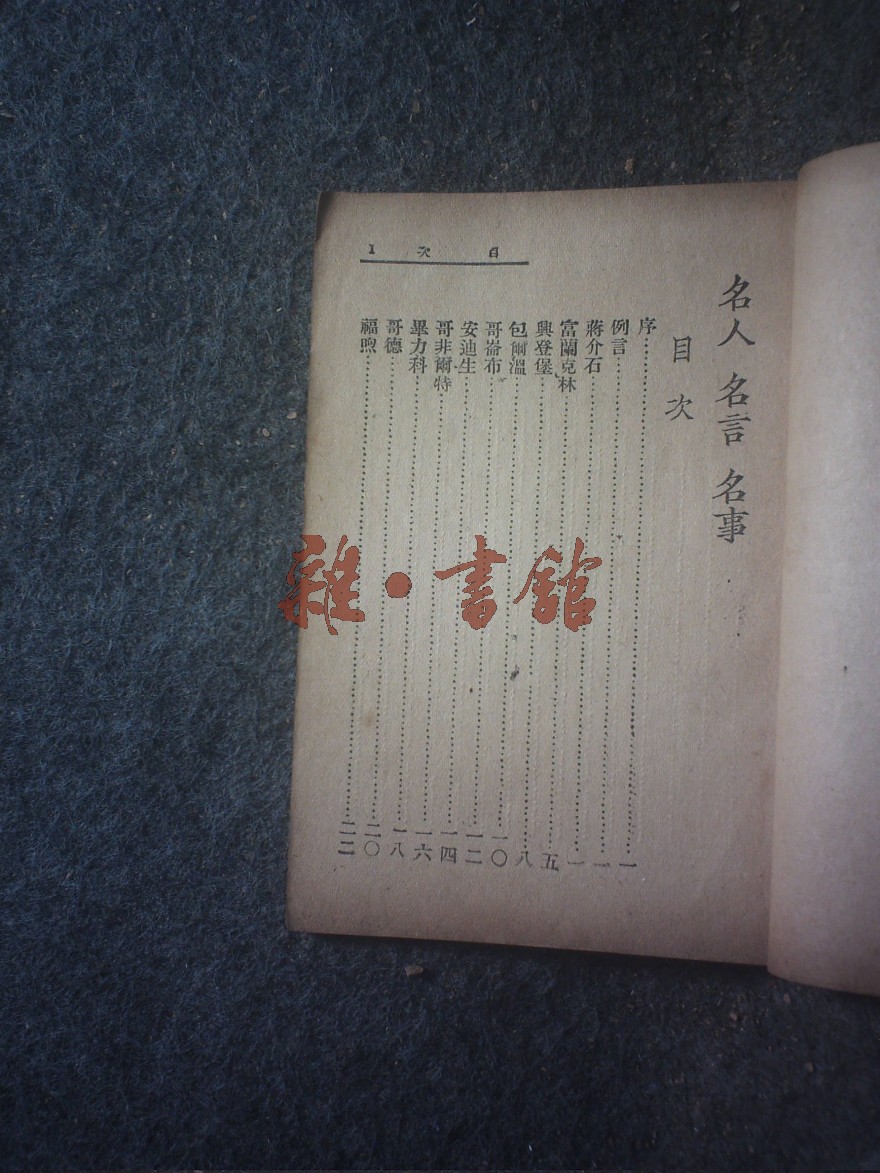 目次 1
名人 名言 名事
目次
序…………一
例言…………一
蔣介石…………一
富蘭克林…………五
興登堡…………八
包爾溫…………一〇
哥崙布…………一二
安迪生…………一四
哥非爾特…………一六
畢力科…………一八
哥德…………二〇
福煦…………二二
雜·書館